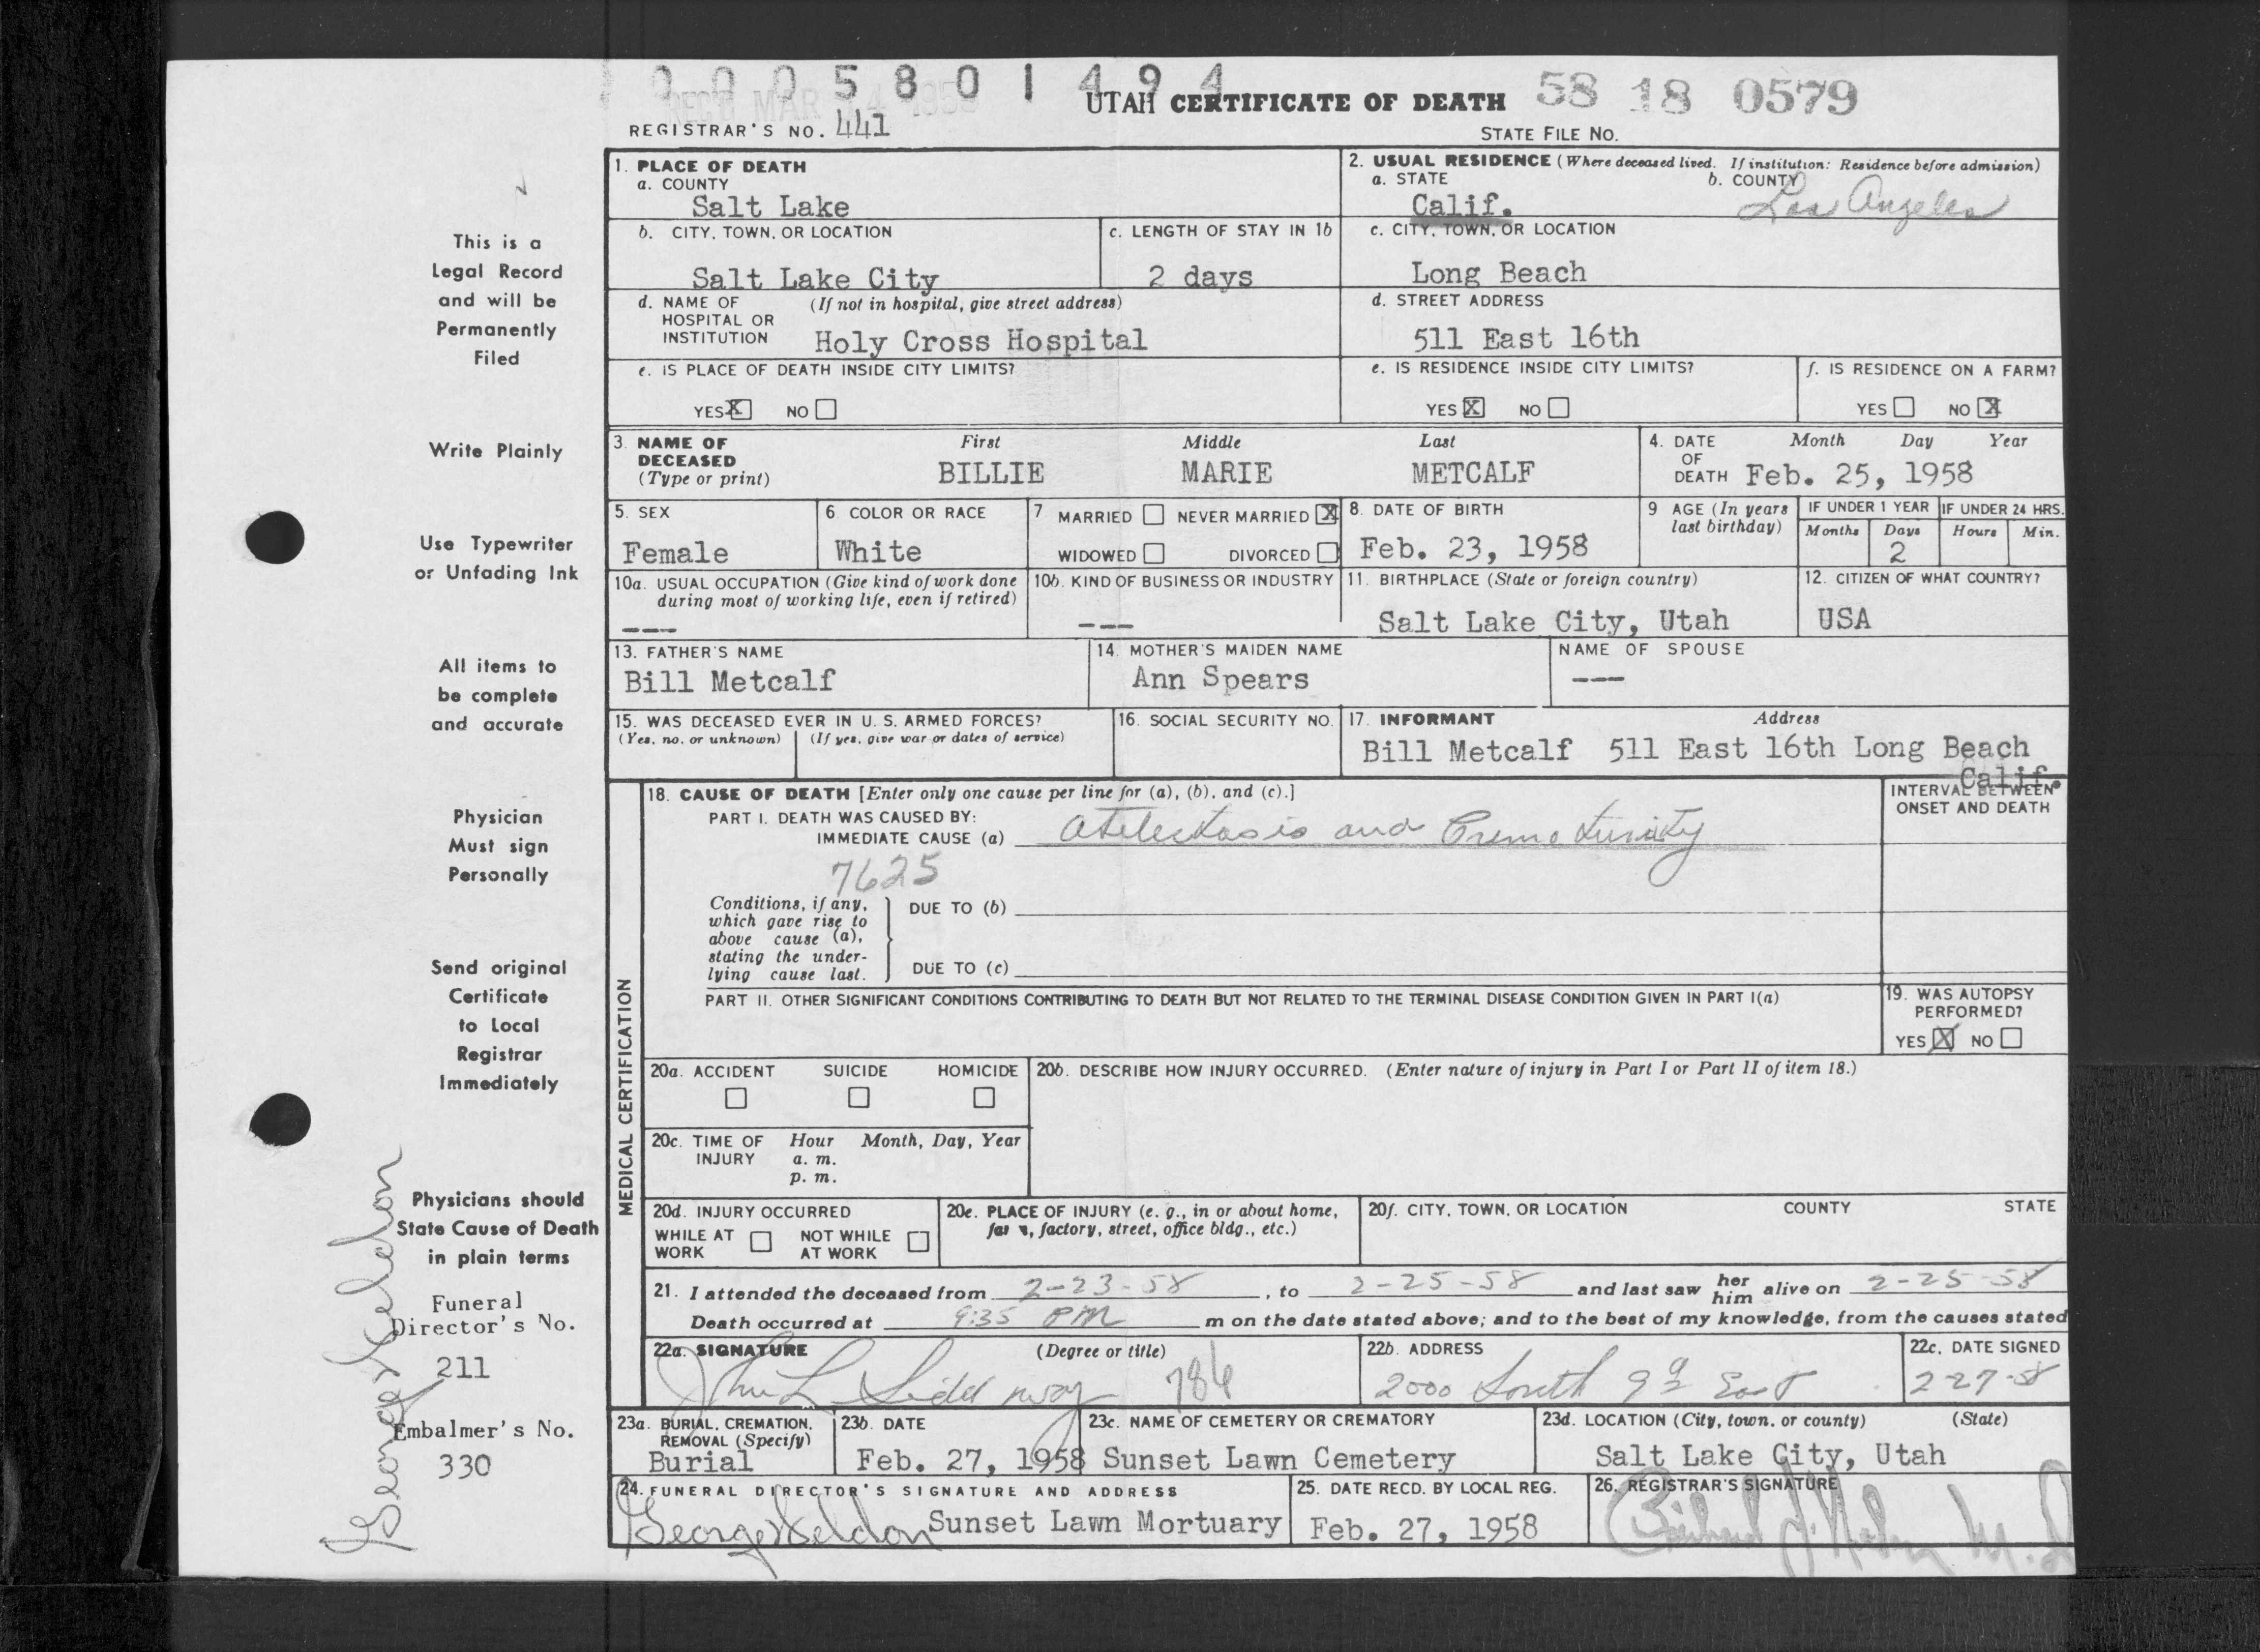 0005801494
REC'D MAR 4 1958
UTAH CERTIFICATE OF DEATH 58 18 0579
REGISTRAR'S NO. 441
STATE FILE NO.
This is a
Legal Record
and will be
Permanently
Filed
Write Plainly
Use Typewriter
or Unfading Ink
All items to
be complete
and accurate
Physician
Must sign
Personally
Send original
Certificate
to Local
Registrar
Immediately
Physicians should
State Cause of Death
in plain terms
Funeral
Director's No.
211
Embalmer's No.
330
George Seldon
1. PLACE OF DEATH
a. COUNTY
Salt Lake
2. USUAL RESIDENCE (Where deceased lived. If institution: Residence before admission)
a. STATE b. COUNTY
Calif. Los Angeles
b. CITY, TOWN, OR LOCATION
Salt Lake City
c. LENGTH OF STAY IN 1b
2 days
c. CITY, TOWN, OR LOCATION
Long Beach
d. NAME OF (If not in hospital, give street address)
HOSPITAL OR
INSTITUTION Holy Cross Hospital
d. STREET ADDRESS
511 East 16th
e. IS PLACE OF DEATH INSIDE CITY LIMITS?
YES X NO
e. IS RESIDENCE INSIDE CITY LIMITS?
YES X NO
f. IS RESIDENCE ON A FARM?
YES NO X
3. NAME OF First Middle Last
DECEASED
(Type or print) BILLIE MARIE METCALF
4. DATE Month Day Year
OF
DEATH Feb. 25, 1958
5. SEX
Female
6. COLOR OR RACE
White
7 MARRIED NEVER MARRIED X
WIDOWED DIVORCED
8. DATE OF BIRTH
Feb. 23, 1958
9 AGE (In years
last birthday)
IF UNDER 1 YEAR IF UNDER 24 HRS.
Months Days Hours Min.
2
10a. USUAL OCCUPATION (Give kind of work done
during most of working life, even if retired)
---
10b. KIND OF BUSINESS OR INDUSTRY
---
11. BIRTHPLACE (State or foreign country)
Salt Lake City, Utah
12. CITIZEN OF WHAT COUNTRY?
USA
13. FATHER'S NAME
Bill Metcalf
14. MOTHER'S MAIDEN NAME
Ann Spears
NAME OF SPOUSE
---
15. WAS DECEASED EVER IN U. S. ARMED FORCES?
(Yes, no, or unknown) (If yes, give war or dates of service)
16. SOCIAL SECURITY NO.
17. INFORMANT Address
Bill Metcalf 511 East 16th Long Beach
Calif.
MEDICAL CERTIFICATION
18. CAUSE OF DEATH [Enter only one cause per line for (a), (b), and (c).]
INTERVAL BETWEEN
ONSET AND DEATH
PART I. DEATH WAS CAUSED BY:
IMMEDIATE CAUSE (a) Atelectasis and Prematurity
7625
Conditions, if any,
which gave rise to
above cause (a),
stating the under-
lying cause last.
DUE TO (b)
DUE TO (c)
PART II. OTHER SIGNIFICANT CONDITIONS CONTRIBUTING TO DEATH BUT NOT RELATED TO THE TERMINAL DISEASE CONDITION GIVEN IN PART I(a)
19. WAS AUTOPSY
PERFORMED?
YES X NO
20a. ACCIDENT SUICIDE HOMICIDE
20b. DESCRIBE HOW INJURY OCCURRED. (Enter nature of injury in Part I or Part II of item 18.)
20c. TIME OF Hour Month, Day, Year
INJURY a. m.
p. m.
20d. INJURY OCCURRED
WHILE AT NOT WHILE
WORK AT WORK
20e. PLACE OF INJURY (e. g., in or about home,
farm, factory, street, office bldg., etc.)
20f. CITY, TOWN, OR LOCATION COUNTY STATE
21. I attended the deceased from 2-23-58, to 2-25-58 and last saw her him alive on 2-25-58
Death occurred at 9:35 PM m on the date stated above; and to the best of my knowledge, from the causes stated
22a. SIGNATURE (Degree or title)
John L Siddoway 786
22b. ADDRESS
2000 South 9th East
22c. DATE SIGNED
2-27-58
23a. BURIAL, CREMATION,
REMOVAL (Specify)
Burial
23b. DATE
Feb. 27, 1958
23c. NAME OF CEMETERY OR CREMATORY
Sunset Lawn Cemetery
23d. LOCATION (City, town, or county) (State)
Salt Lake City, Utah
24. FUNERAL DIRECTOR'S SIGNATURE AND ADDRESS
George Seldon Sunset Lawn Mortuary
25. DATE RECD. BY LOCAL REG.
Feb. 27, 1958
26. REGISTRAR'S SIGNATURE
M.D.